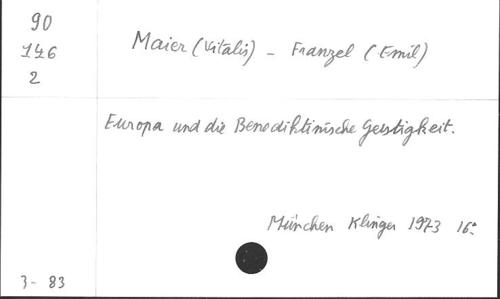 90
146
2
Maier (Vitalis) - Franzel (Emil)
Europa und die Benediktinische Geistigkeit.
München Klinger 1973 16°
3- 83